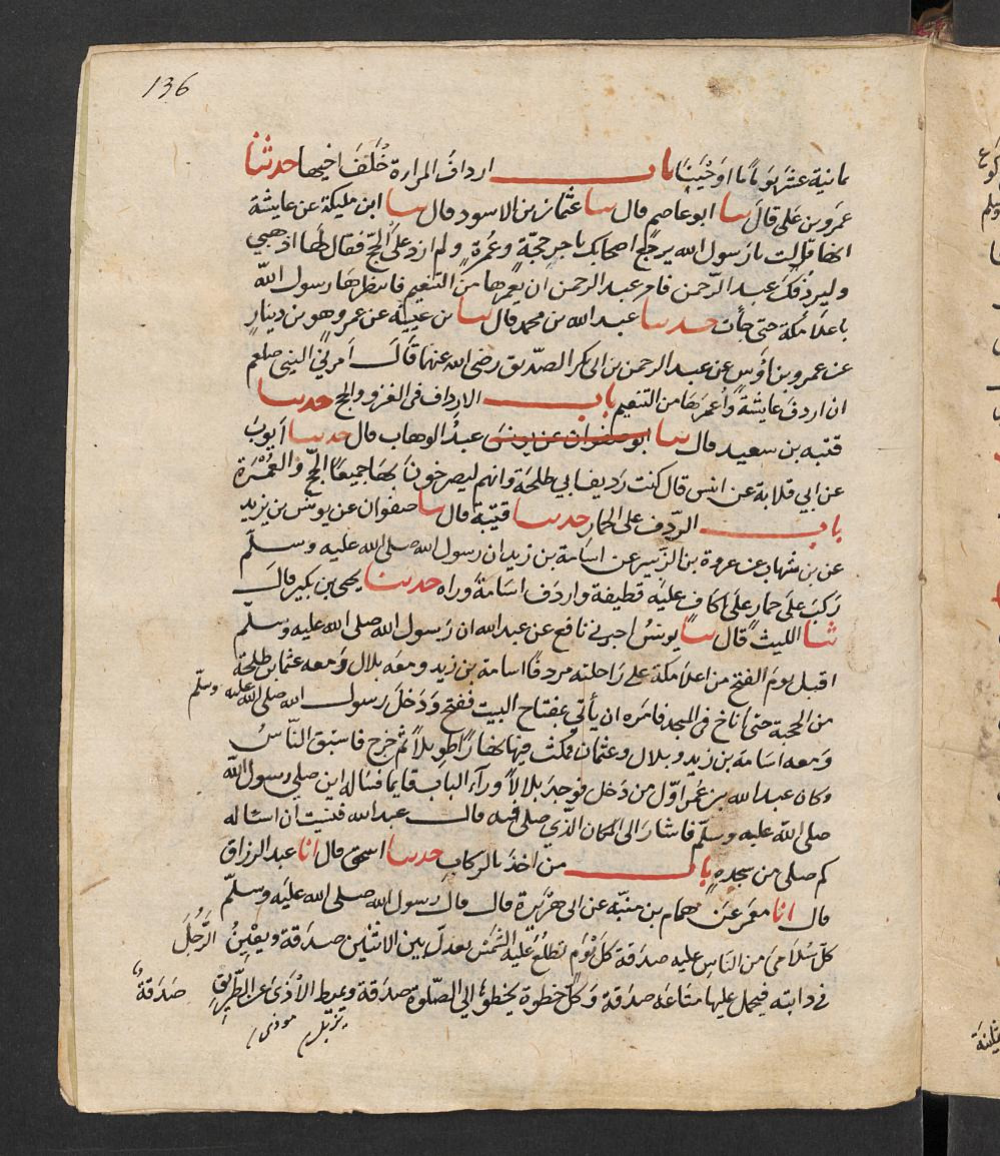 136
مانية عشر يوما ما اوخيبنا باب ارداف المرارة خلف اخيها حدثنا
عمرو بن على قال نا ابو عاصم قال نا عثمان بن الاسود قال نا ابن مليكة عن عايشة
انها قالت يا رسول الله يرجع اصحابك باجر حجّةٍ وعمرةٍ ولم ازد على الحجّ فقال لها اذهبي
وليردفك عبد الرّحمن فامر عبد الرحمن ان يعمرها من التنعيم فانتظرها رسول اللّه
باعلا مكة حتى جأت حدثنا عبد الله بن محمد قال نا بن عيينة عن عمرو هو بن دينار
عن عمرو بن اوس عن عبد الرحمن بن ابى بكر الصدّيق رضى الله عنهما قال امرني النبى صلعم
ان اردف عايشة واعمرها من التنعيم باب الارداف فى الغزو والحج حدثنا
قتبه بن سعيد قال نا ابو صفوان عن يونس عبد الوهاب قال حدثنا أيوب
عن ابي قلابة عن انس قال كنت رديف ابي طلحة وانهم ليصرخون بها جميعا الحجّ والعمرة
باب الردف على الحمار حدثنا قتيبة قال نا صفوان عن يونس بن يزيد
عن بن شهاب عن عروة بن الزبير عن اسامة بن زيد ان رسول الله صلى الله عليه وسلّم
ركب على حمار على اكاف عليه قطيفة واردف اسامة وراه حدثنا يحيى بن بكير قال
ثنا الليث قال نا يونس اخبرنى نافع عن عبد الله ان رسول الله صلى الله عليه وسلّم
اقبل يوم الفتح من اعلا مكة على راحلته مردفا اسامة بن زيد ومعه بلال ومعه عثما بن طلحة
من الحجبة حتى اناخ فى المسجد فامره ان يأتى بمفتاح البيت ففتح ودخل رسول الله صلى الله عليه وسلّم
ومعه اسامة بن زيد وبلال وعثمان فمكث فيها نهارا طويلا ثم خرج فاستبق النّاس
وكان عبد الله بن عمر اوّل من دخل فوجد بلالا ورآء الباب قايما فساله اين صلى رسول اللّه
صلى اللّه عليه وسلّم فاشار الى المكان الذّي صلى فيه قال عبد الله فنسيت ان اسئاله
كم صلى من سجدةٍ باب من اخذ بالركاب حدثنا اسحق قال انا عبد الرزاق
قال انا معمر عن همام بن منبّه عن ابى هرٓيرة قال قال رسول الله صلى الله عليه وسلّم
كلّ سُلَامى من النّاس عليه صدقة كل يوم تطلع عليه الشّمس يعدل بين الاثنين صدقة ويعينُ الرَّجُلَ
فى دابته فيحمل عليها متاعه صدقة وكلّ خطوة يخطوها الى الصّلوة صدقة ويميط الأذى عن الطّريق صدقةٌ
يزيل موذى